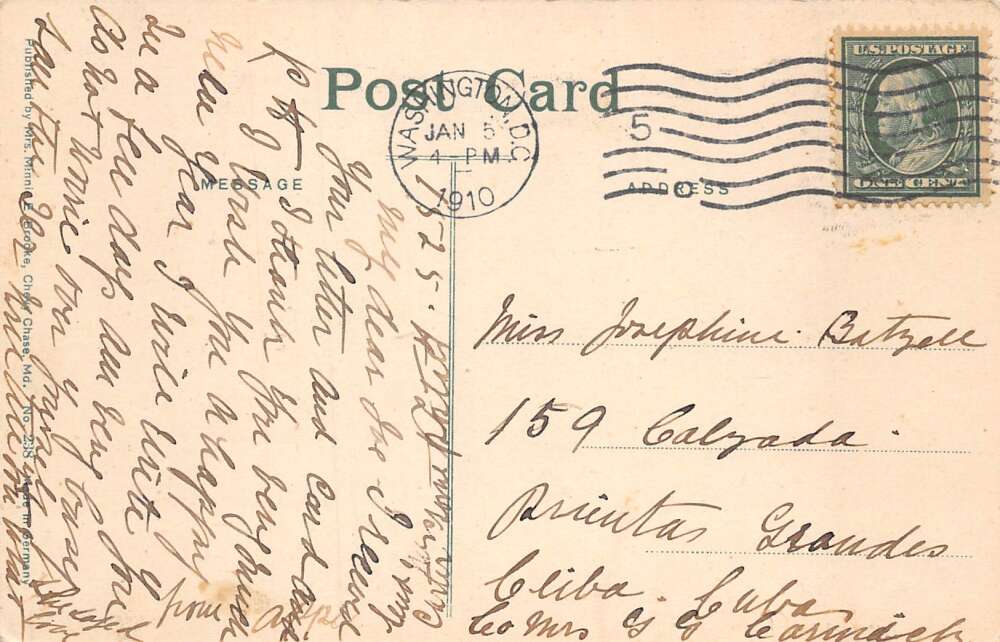 Post Card
MESSAGE
ADDRESS
WASHINGTON, D.C.
JAN 5
4-PM
1910
5
U.S. POSTAGE
ONE CENT
Miss Josephine Batzell
159 Calzada
Puentas Grandes
Ceiba. Cuba
Co Mrs G G
my dear Joe I received
Your letter and Card and
I thank You very much
I Wish You a happy
new Year I will write You
in a few days am very busy
do not worrie over Yourself
from
Published by Mrs. Minnie E. Brooke, Chevy Chase, Md. No. 238 Made in Germany